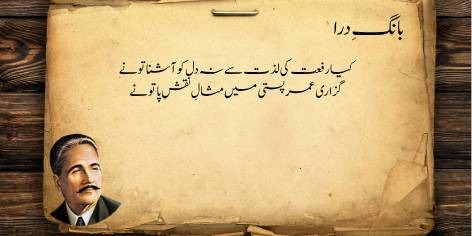 بانگِ درا
کیا رفعت کی لذت سے نہ دل کو آشنا تو نے
گزاری عمر پستی میں مثالِ نقش پا تو نے